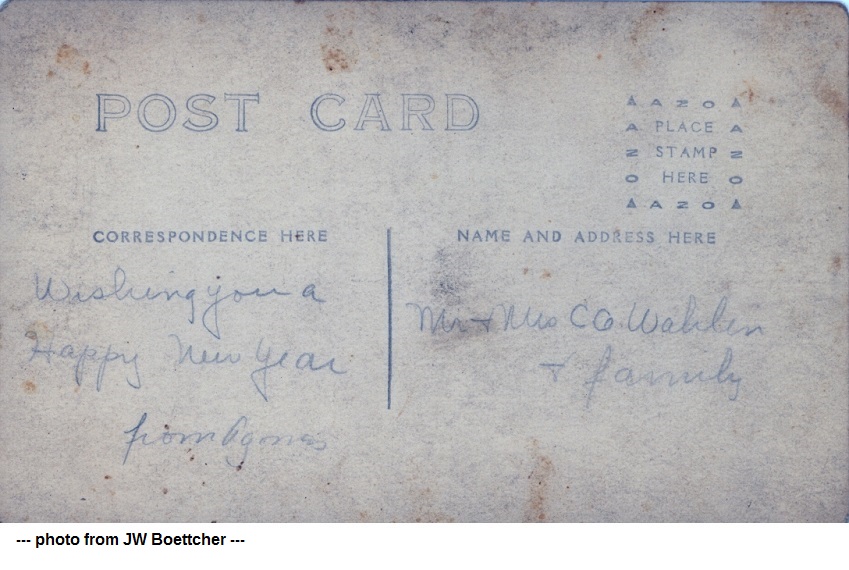 POST CARD
▲ A Z O ▲
A PLACE A
Z STAMP Z
O HERE O
▲ A Z O ▲
CORRESPONDENCE HERE
NAME AND ADDRESS HERE
Wishing you a
Happy New Year
from Agnes
Mr + Mrs C O Wahlen
+ family
--- photo from JW Boettcher ---